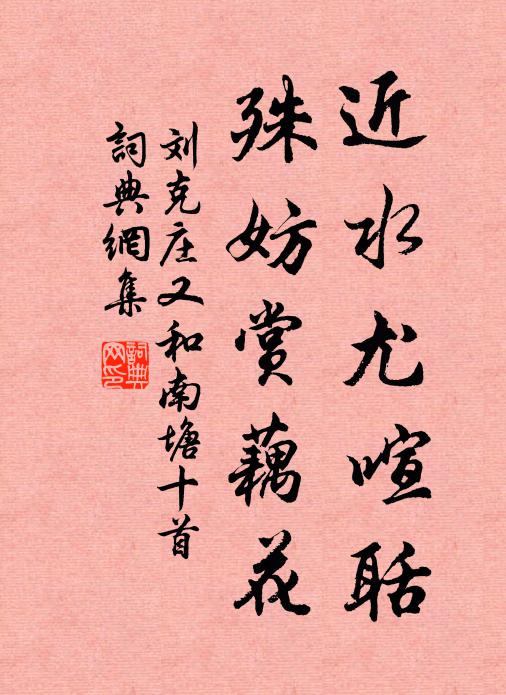 近水尤喧聒
殊妨赏藕花
刘克庄又和南塘十首
詞典網集
詞典网印